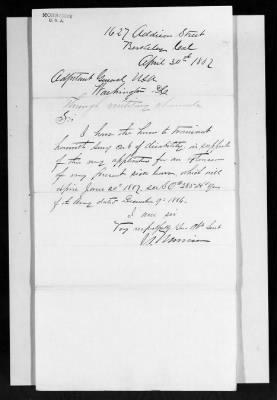 1627 Addison Street
Berkeley Cal
April 30th 1887
Adjutant General USA
Washington DC
Through military channels
Sir
I have the honor to transmit
herewith surg. cert. of disability in support
of this my application for an extension
of my present sick leave, which will
expire June 20" 1887. see S.O. 285
of the Army dated December 9" 1886.
I am sir
Very respectfully